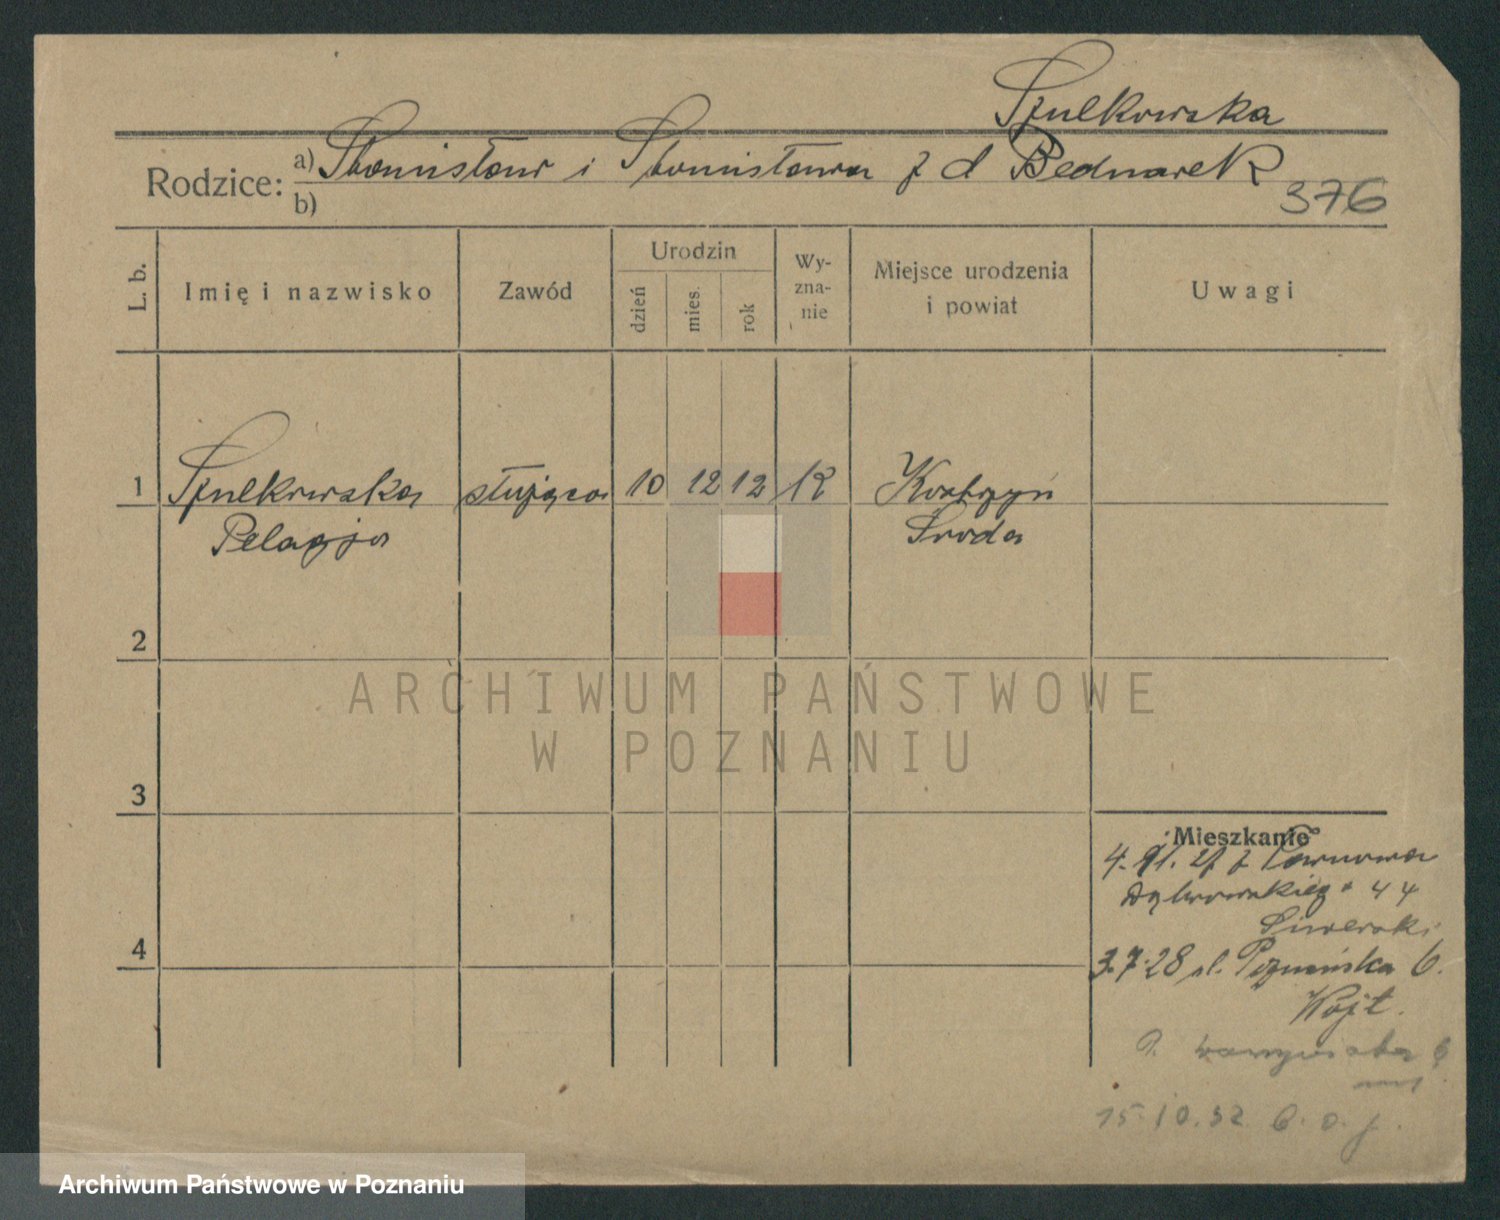 Szulkowska
Rodzice: a) Stanisław i Stanisława z d Bednarek
b)
376
L. b.
Imię i nazwisko
Zawód
Urodzin
dzień
mies.
rok
Wy-
zna-
nie
Miejsce urodzenia
i powiat
Uwagi
1 Szulkowska służąca 10 12 12 K
Pelagja
Środa
2
ARCHIWUM PAŃSTWOWE
W POZNANIU
3
Mieszkanie
44
4
3.7.28 ul. Poznańska 6.
Wojt.
15.10.32
Archiwum Państwowe w Poznaniu